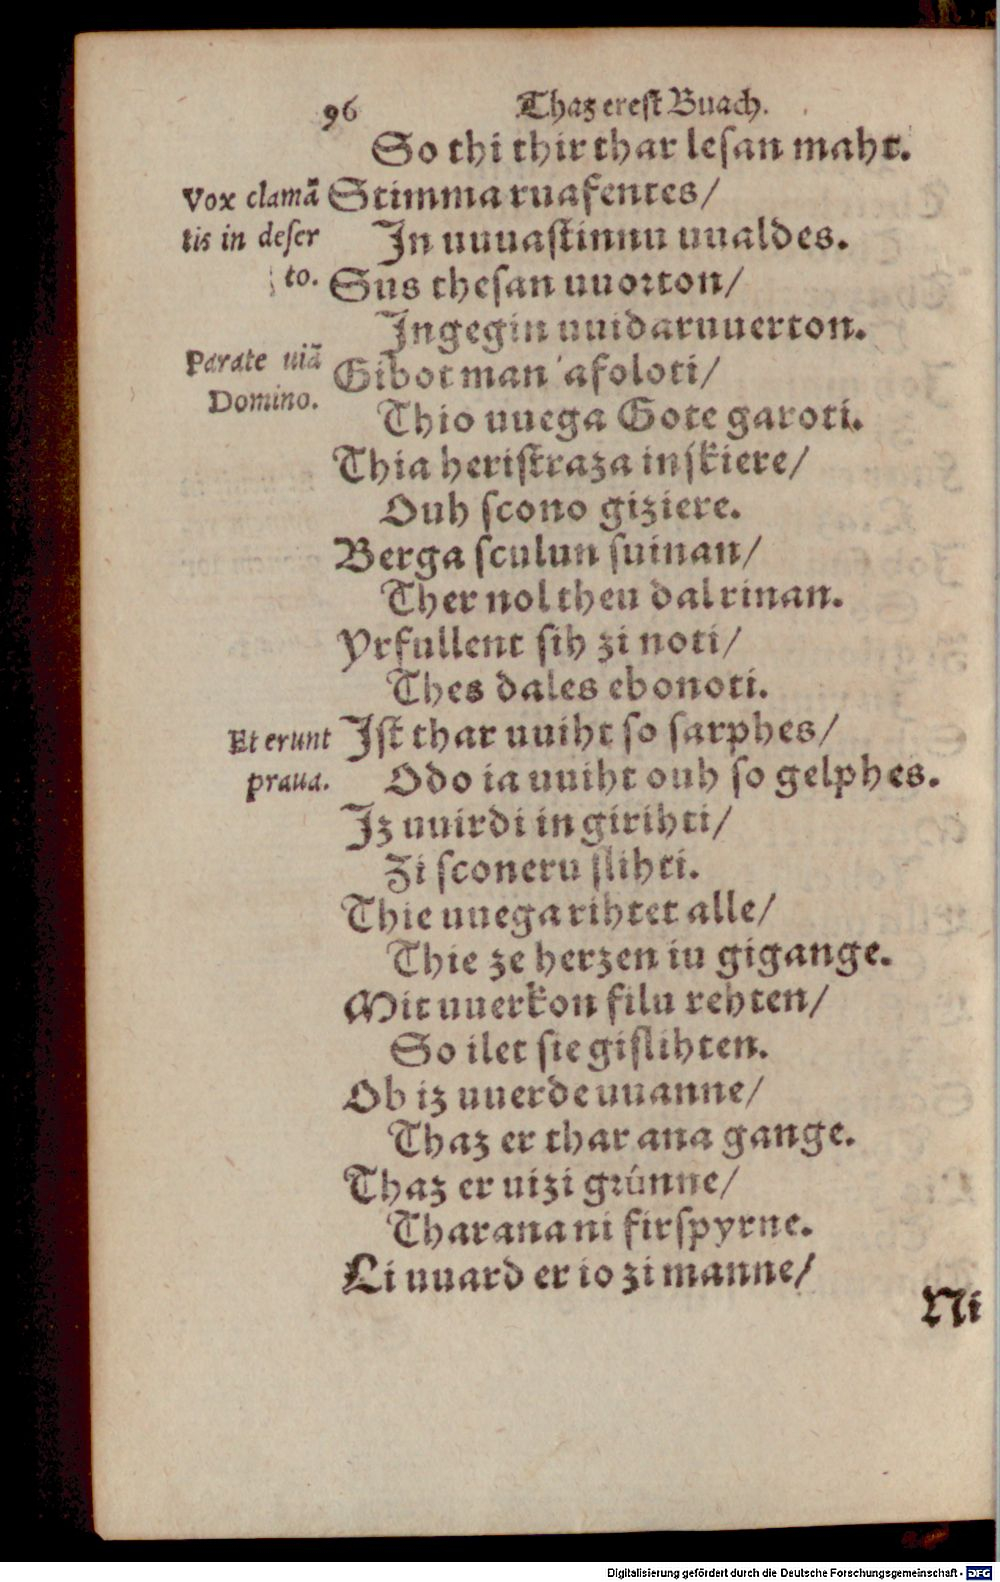 96 Thaz erest Buach.
So thi thir thar lesan maht.
Vox clamā
Stimma ruafentes/
tis in deser
In uuuastinnu uualdes.
to.
Sus thesan uuorton/
Ingegin uuidaruuerton.
Parate uiā
Gibot man afoloti/
Domino.
Thio uuega Gote garoti.
Thia heristraza inskiere/
Ouh scono giziere.
Berga sculun suinan/
Ther nol theu dal rinan.
Yrfullent sih zi noti/
Thes dales ebonoti.
Et erunt
Ist thar uuiht so sarphes/
praua.
Odo ia uuiht ouh so gelphes.
Iz uuirdi in girihti/
Zi sconeru slihti.
Thie uuega rihtet alle/
Thie ze herzen iu gigange.
Mit uuerkon filu rehten/
So ilet sie gislihten.
Ob iz uuerde uuanne/
Thaz er thar ana gange.
Thaz er uizi grúnne/
Tharana ni firspyrne.
Li uuard er io zi manne/
Ni
Digitalisierung gefördert durch die Deutsche Forschungsgemeinschaft - DFG